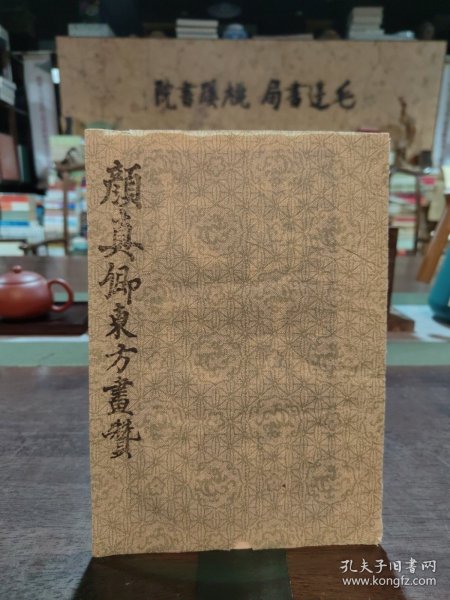 毛边書局 桃蹊書院
顏真卿東方畫贊
孔夫子旧书网
www.kongfz.com